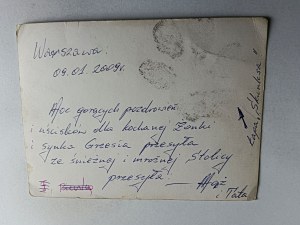 Warszawa
09.01.2009r.
Moc gorących pozdrowień
i uścisków dla kochanej Żonki
i synka Grzesia przesyła
ze śnieżnej i mroźnej Stolicy
przesyła! — Mąż
i Tata
łapa „